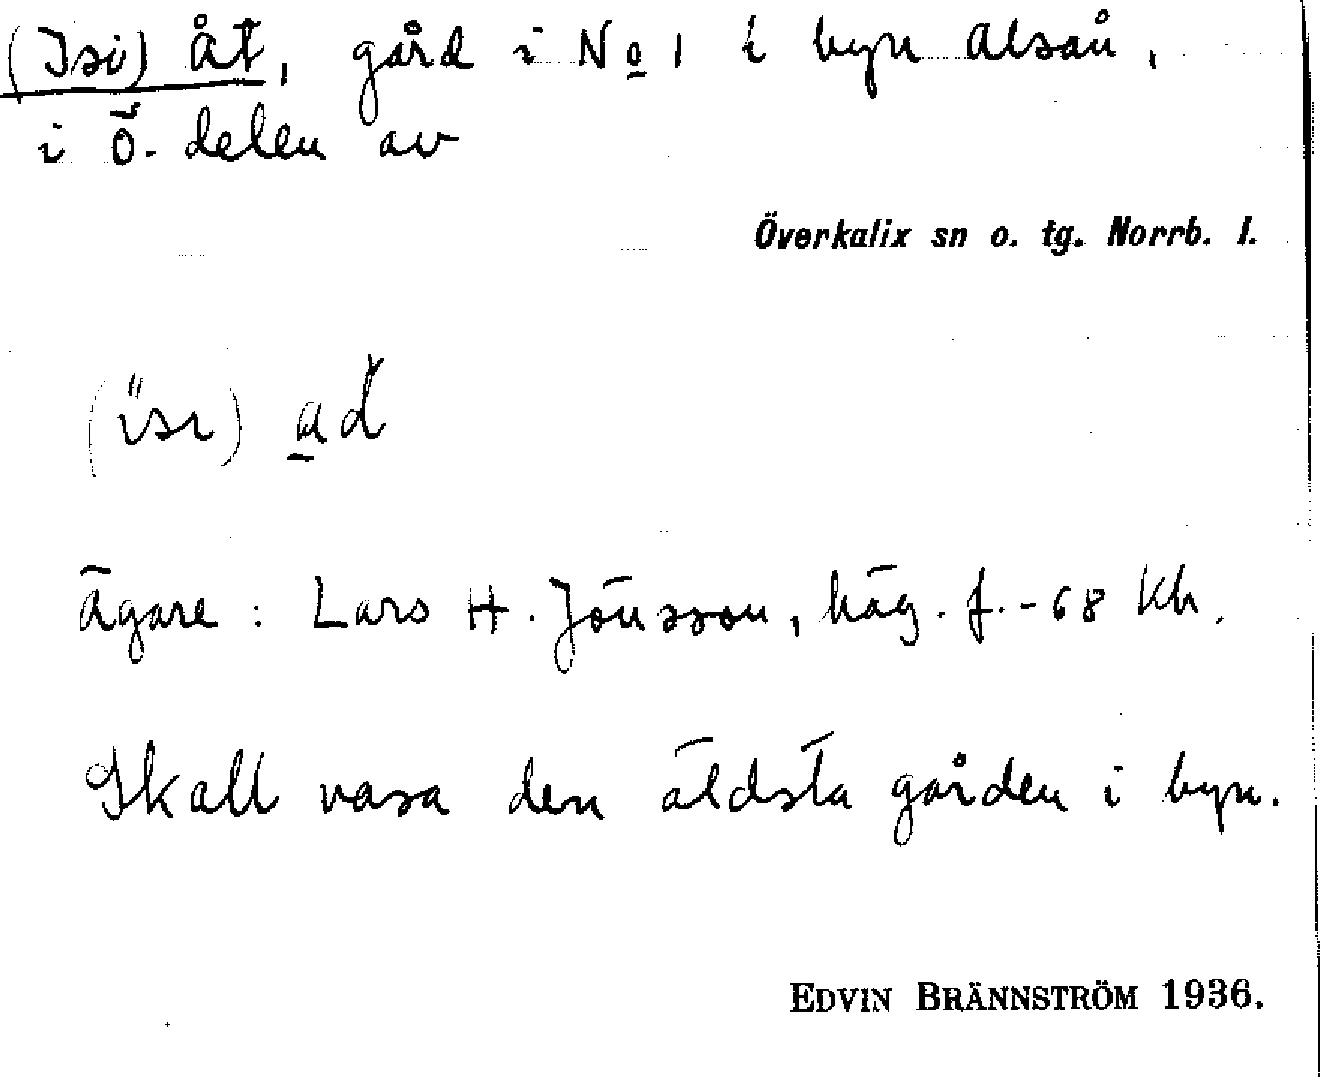 (Isi) åt, gård i No 1 i byn Alsån,
i ö. delen av
Överkalix sn o. tg. Norrb. l.
(üsi) ad
ägare: Lars H. Jönsson, häg. f. -68 Kh.
Skall vara den äldsta gården i byn.
EDVIN BRÄNNSTRÖM 1936.